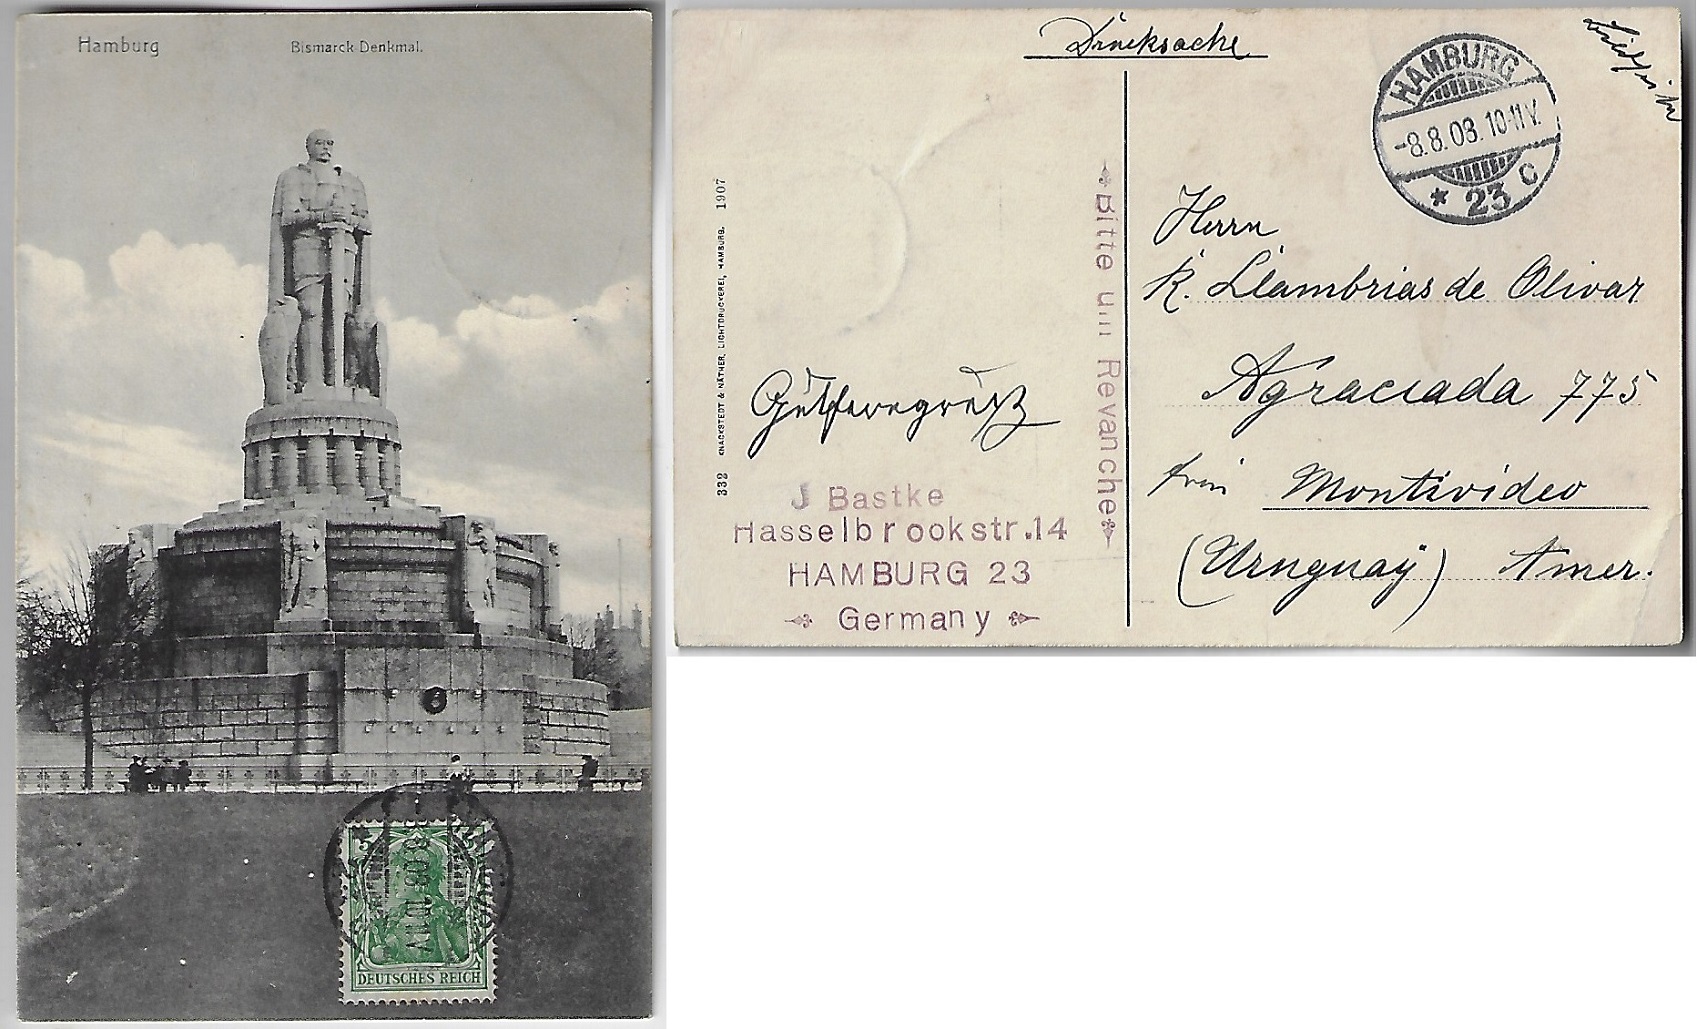 Hamburg Bismarck Denkmal.
5 5
DEUTSCHES REICH
Drucksache
HAMBURG
-8.8.08. 10-11V.
* 23 C
KNACKSTEDT & NÄTHER, LICHTDRUCKEREI, HAMBURG. 1907
332
Bitte um Revanche
J Bastke
Hasselbrookstr.14
HAMBURG 23
Germany
Herrn
R. Llambrias de Olivar
Agraciada 775
Montivideo
(Uruguaÿ) Amer.